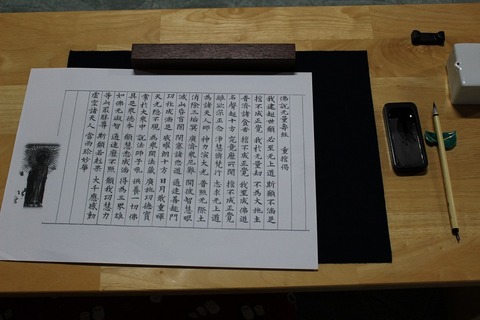 佛説無量壽経 重誓偈
我建超世願 必至無上道 斯願不満足
誓不成正覚 我於無量劫 不為大施主
普濟諸貧苦 誓不成正覚 我至成佛道
名聲超十方 究竟靡所聞 誓不成正覚
離欲深正念 浄慧修梵行 志求無上道
為諸天人師 神力演大光 普照無際土
消除三垢冥 廣濟衆厄難 開彼智慧眼
滅此昏盲闇 閉塞諸悪道 通達善趣門
功祚成満足 威曜朗十方 日月戢重暉
天光隠不現 為衆開法蔵 廣施功徳寶
常於大衆中 説法師子吼 供養一切佛
具足衆徳本 願慧悉成満 得為三界雄
如佛無礙智 通達靡不照 願我功慧力
等此最勝尊 斯願若剋果 大千應感動
虚空諸天人 當雨珍妙華